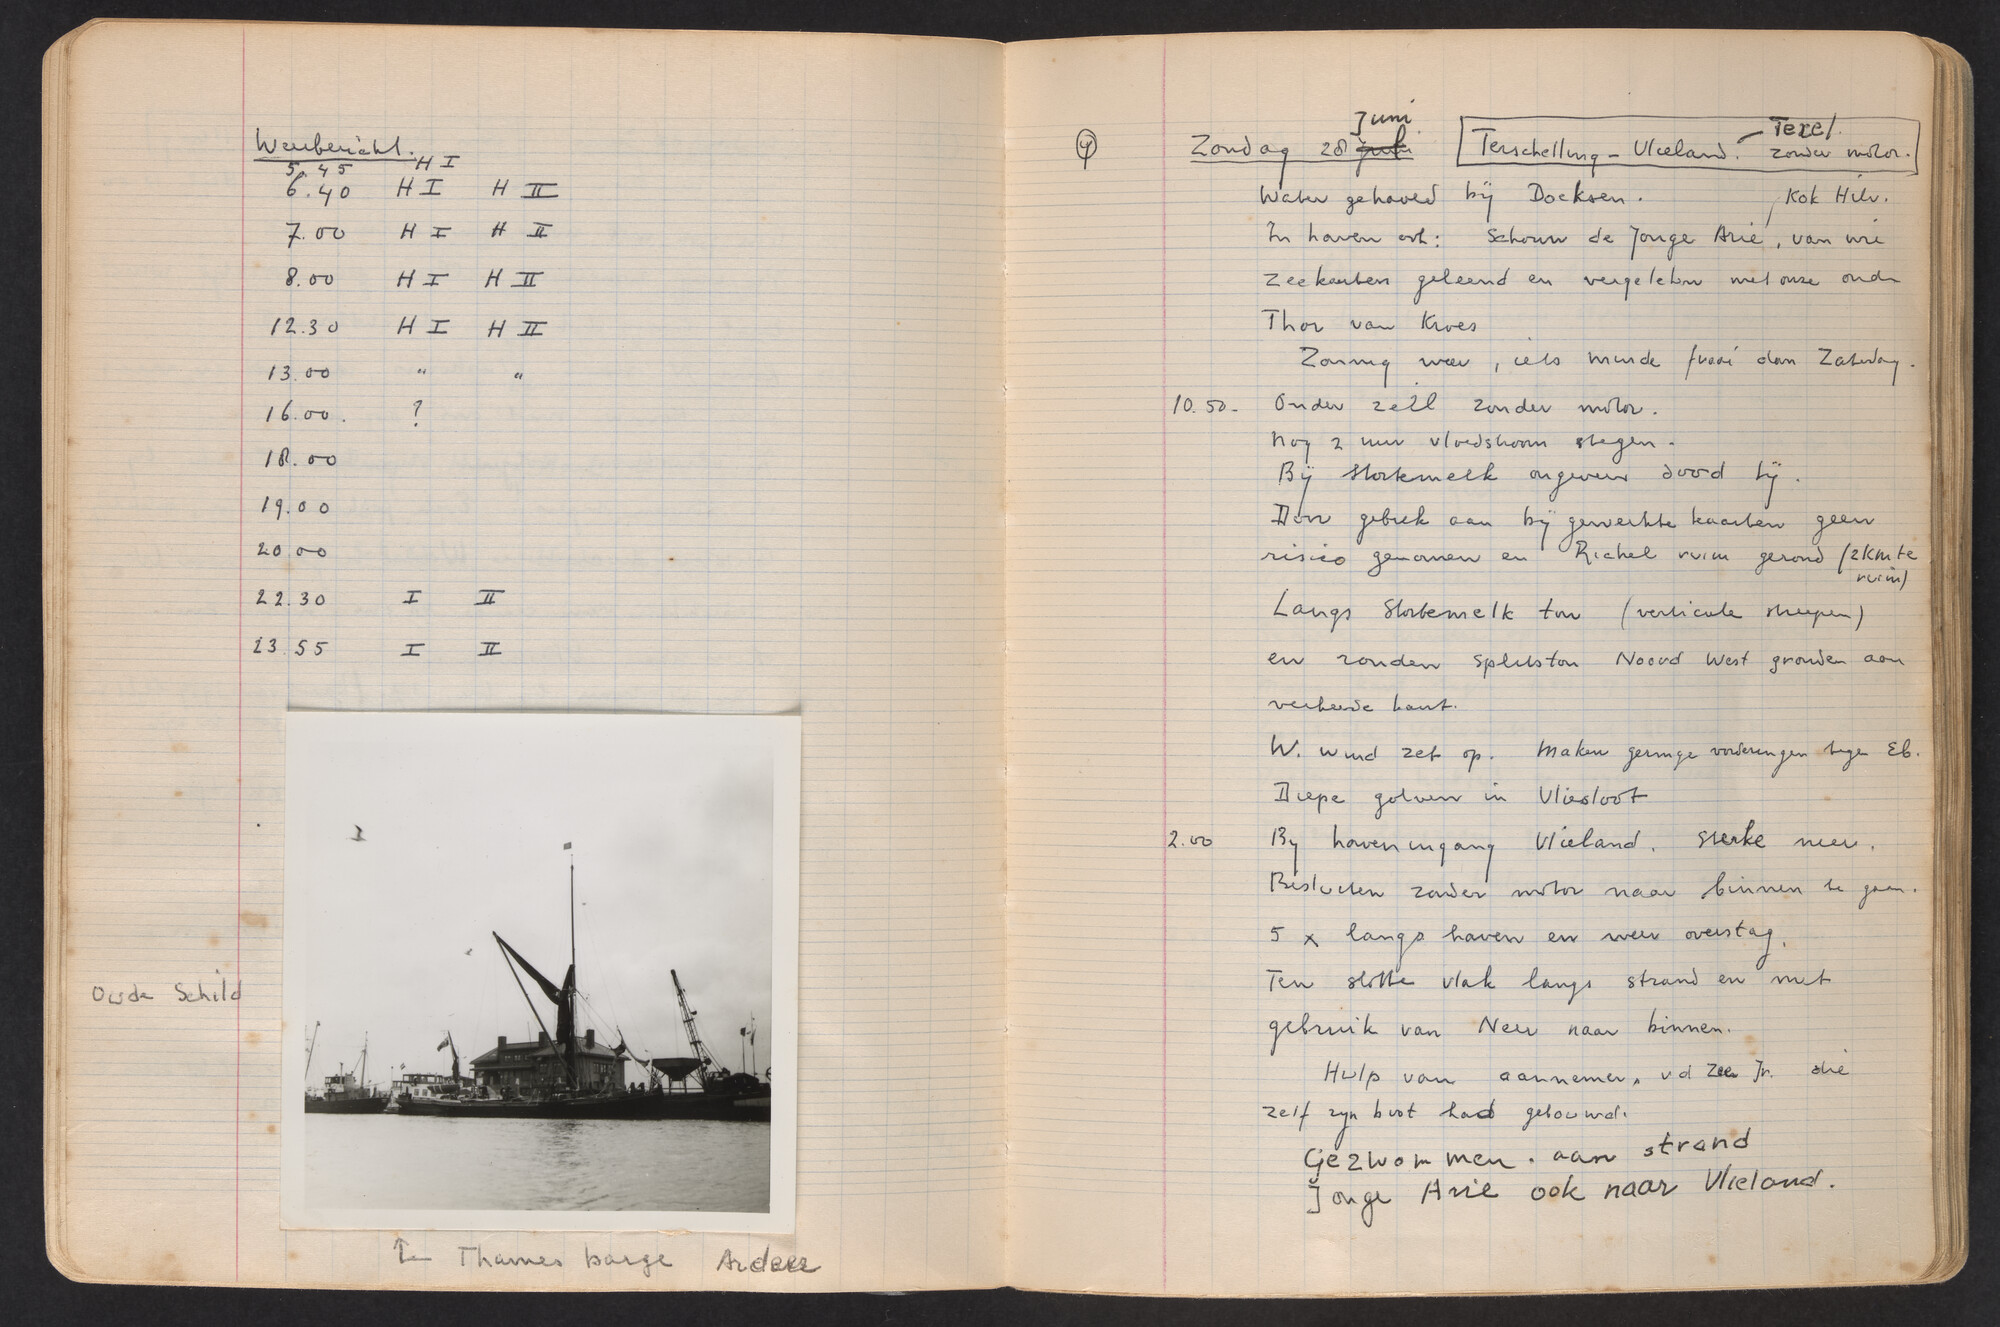 Weerbericht.
5.45 H I
6.40 H I H II
7.00 H I H II
8.00 H I H II
12.30 H I H II
13.00 " "
16.00. ?
18.00
19.00
20 00
22.30 I II
23 55 I II
Oude Schild
↑ Thames barge Ardeer
④ Zondag 28 Juli Juni Terschelling - Vlieland. - Texel. zonder motor.
Water gehaald bij Doeksen. Kok Hilv.
In haven ook: Schouw de Jonge Arie, van wie
zeekaarten geleend en vergeleken met onze oude
Thor van Kroes
Zonnig weer, iets minder fraai dan Zaterdag.
10.50- Onder zeil zonder motor.
Nog 2 uur vloedstroom tegen.
Bij Stortemelk ongeveer dood tij.
Door gebrek aan bij gewerkte kaarten geen
risico genomen en Richel ruim gerond (2km te
ruim)
Langs Stortemelk ton (verticale strepen)
en ronden splitston Noord West gronden aan
verkeerde kant.
W. wind zet op. Maken geringe vorderingen tegen Eb.
Diepe golven in Vliesloot
2.00 By haveningang Vlieland. Sterke neer.
Besluiten zonder motor naar binnen te gaan.
5 x langs haven en weer overstag.
Ten slotte vlak langs strand en met
gebruik van Neer naar binnen.
Hulp van aannemer, vd Zee Jr. die
zelf zyn boot had gebouwd.
Gezwommen. aan strand
Jonge Arie ook naar Vlieland.